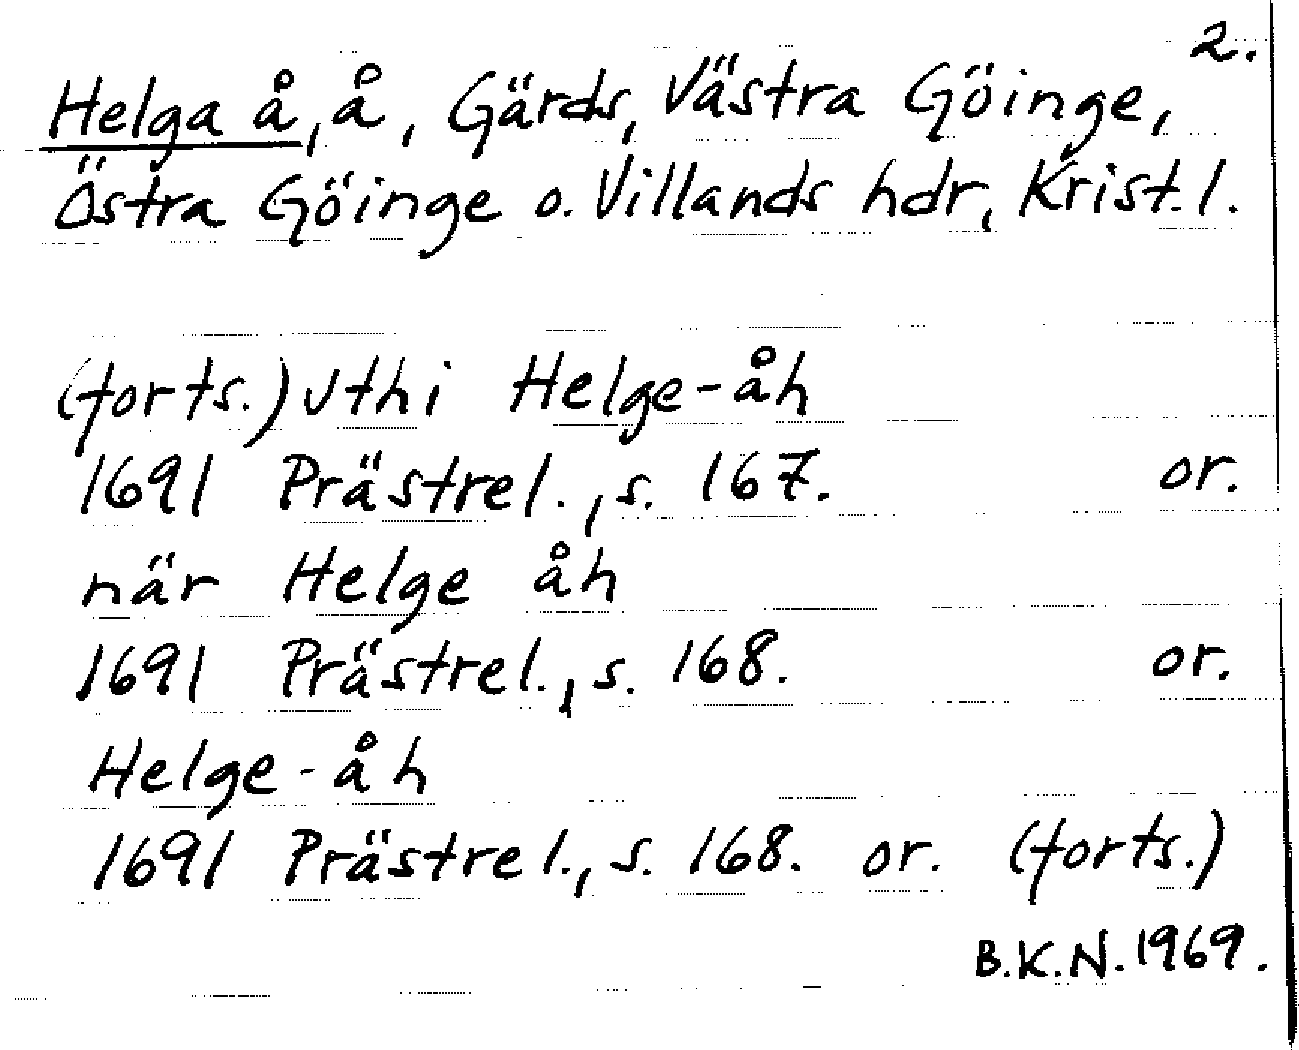 2.
Helga å, å, Gärds, Västra Göinge,
Östra Göinge o. Villands hdr, Krist. l.
(forts.) Uthi Helge-åh
1691 Prästrel., s. 167. or.
när Helge åh
1691 Prästrel., s. 168. or.
Helge-åh
1691 Prästrel., s. 168. or. (forts.)
B.K.N. 1969.